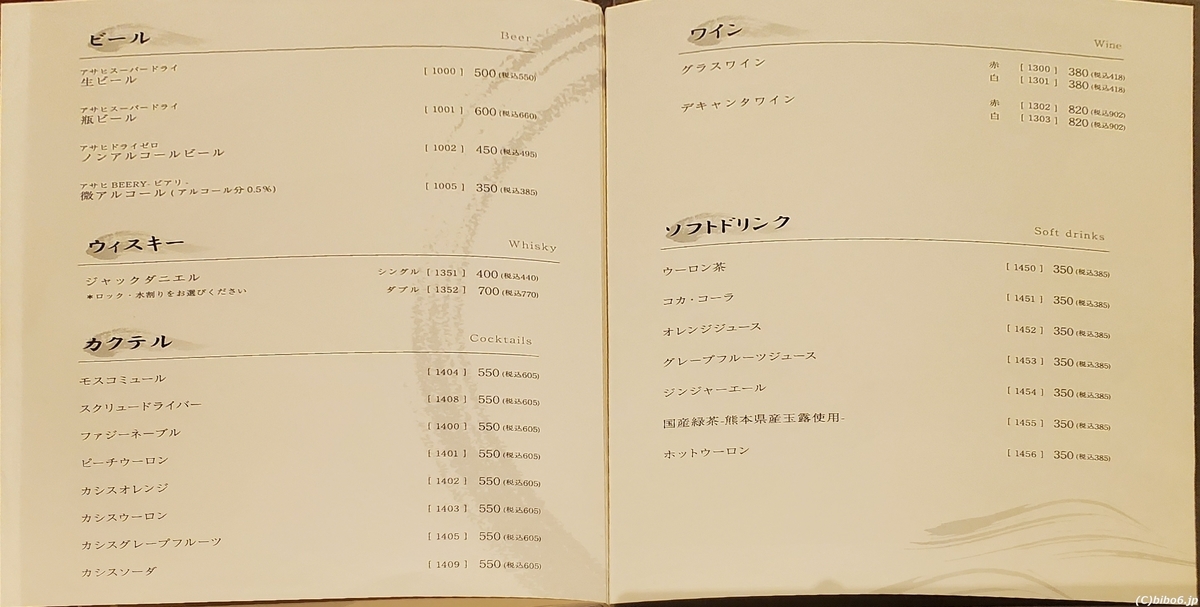 ビール Beer
アサヒスーパードライ
生ビール [ 1000 ] 500(税込550)
アサヒスーパードライ
瓶ビール [ 1001 ] 600(税込660)
アサヒドライゼロ
ノンアルコールビール [ 1002 ] 450(税込495)
アサヒBEERY-ビアリ-
微アルコール(アルコール分0.5%) [ 1005 ] 350(税込385)
ウィスキー Whisky
ジャックダニエル シングル [ 1351 ] 400(税込440)
*ロック・水割りをお選びください ダブル [ 1352 ] 700(税込770)
カクテル Cocktails
モスコミュール [ 1404 ] 550(税込605)
スクリュードライバー [ 1408 ] 550(税込605)
ファジーネーブル [ 1400 ] 550(税込605)
ピーチウーロン [ 1401 ] 550(税込605)
カシスオレンジ [ 1402 ] 550(税込605)
カシスウーロン [ 1403 ] 550(税込605)
カシスグレープフルーツ [ 1405 ] 550(税込605)
カシスソーダ [ 1409 ] 550(税込605)
ワイン Wine
グラスワイン 赤 [ 1300 ] 380(税込418)
白 [ 1301 ] 380(税込418)
デキャンタワイン 赤 [ 1302 ] 820(税込902)
白 [ 1303 ] 820(税込902)
ソフトドリンク Soft drinks
ウーロン茶 [ 1450 ] 350(税込385)
コカ・コーラ [ 1451 ] 350(税込385)
オレンジジュース [ 1452 ] 350(税込385)
グレープフルーツジュース [ 1453 ] 350(税込385)
ジンジャーエール [ 1454 ] 350(税込385)
国産緑茶-熊本県産玉露使用- [ 1455 ] 350(税込385)
ホットウーロン [ 1456 ] 350(税込385)
(C)bibo6.jp